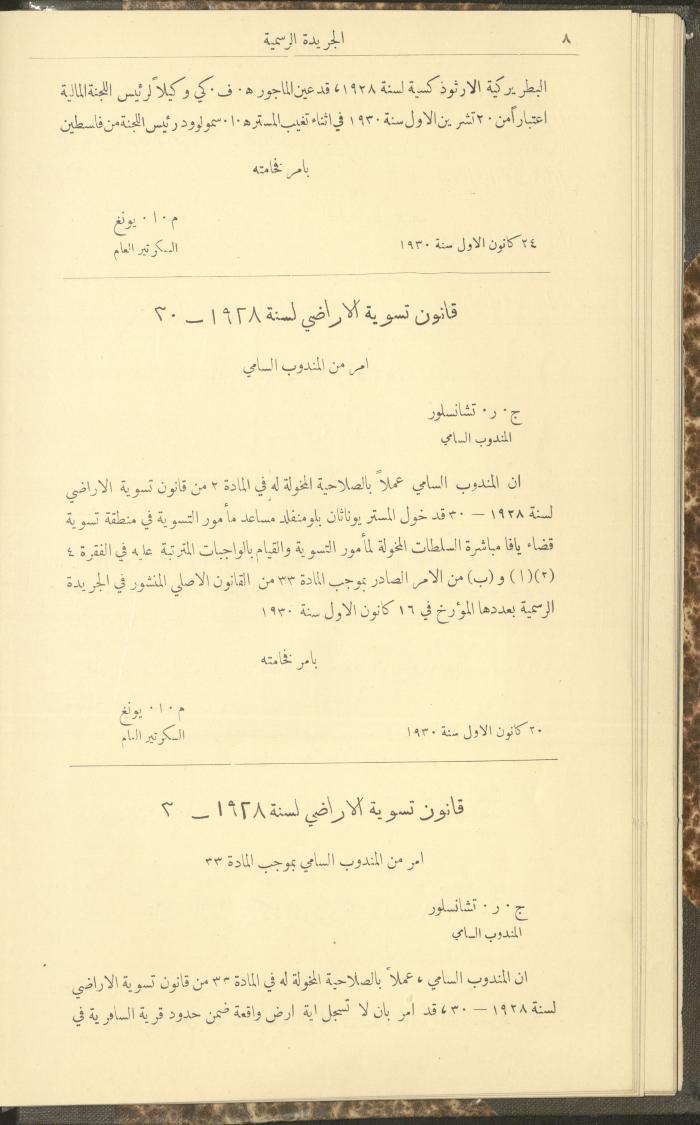 ٨
الجريدة الرسمية
البطريركية الارثوذكسية لسنة ١٩٢٨، قد عين الماجور ه٠ ف٠ كي وكيلاً لرئيس اللجنة المالية
اعتباراً من ٢٠ تشرين الاول سنة ١٩٣٠ في اثناء تغيب المستر ه٠ا٠ سمولوود رئيس اللجنة من فلسطين
بامر فخامته
م٠ا٠ يونغ
٢٤ كانون الاول سنة ١٩٣٠
السكرتير العام
قانون تسوية الاراضي لسنة ١٩٢٨ — ٣٠
امر من المندوب السامي
ج٠ ر٠ تشانسلور
المندوب السامي
ان المندوب السامي عملاً بالصلاحية المخولة له في المادة ٢ من قانون تسوية الاراضي
لسنة ١٩٢٨ — ٣٠ قد خول المستر يوناثان بلومنفلد مساعد مأمور التسوية في منطقة تسوية
قضاء يافا مباشرة السلطات المخولة لمأمور التسوية والقيام بالواجبات المترتبة عليه في الفقرة ٤
(٢)(١) و (ب) من الامر الصادر بموجب المادة ٣٣ من القانون الاصلي المنشور في الجريدة
الرسمية بعددها المؤرخ في ١٦ كانون الاول سنة ١٩٣٠
بامر فخامته
م٠ا٠ يونغ
٢٠ كانون الاول سنة ١٩٣٠
السكرتير العام
قانون تسوية الاراضي لسنة ١٩٢٨ — ٣
امر من المندوب السامي بموجب المادة ٣٣
ج٠ ر٠ تشانسلور
المندوب السامي
ان المندوب السامي، عملاً بالصلاحية المخولة له في المادة ٣٣ من قانون تسوية الاراضي
لسنة ١٩٢٨ — ٣٠، قد امر بان لا تسجل اية ارض واقعة ضمن حدود قرية السافرية في